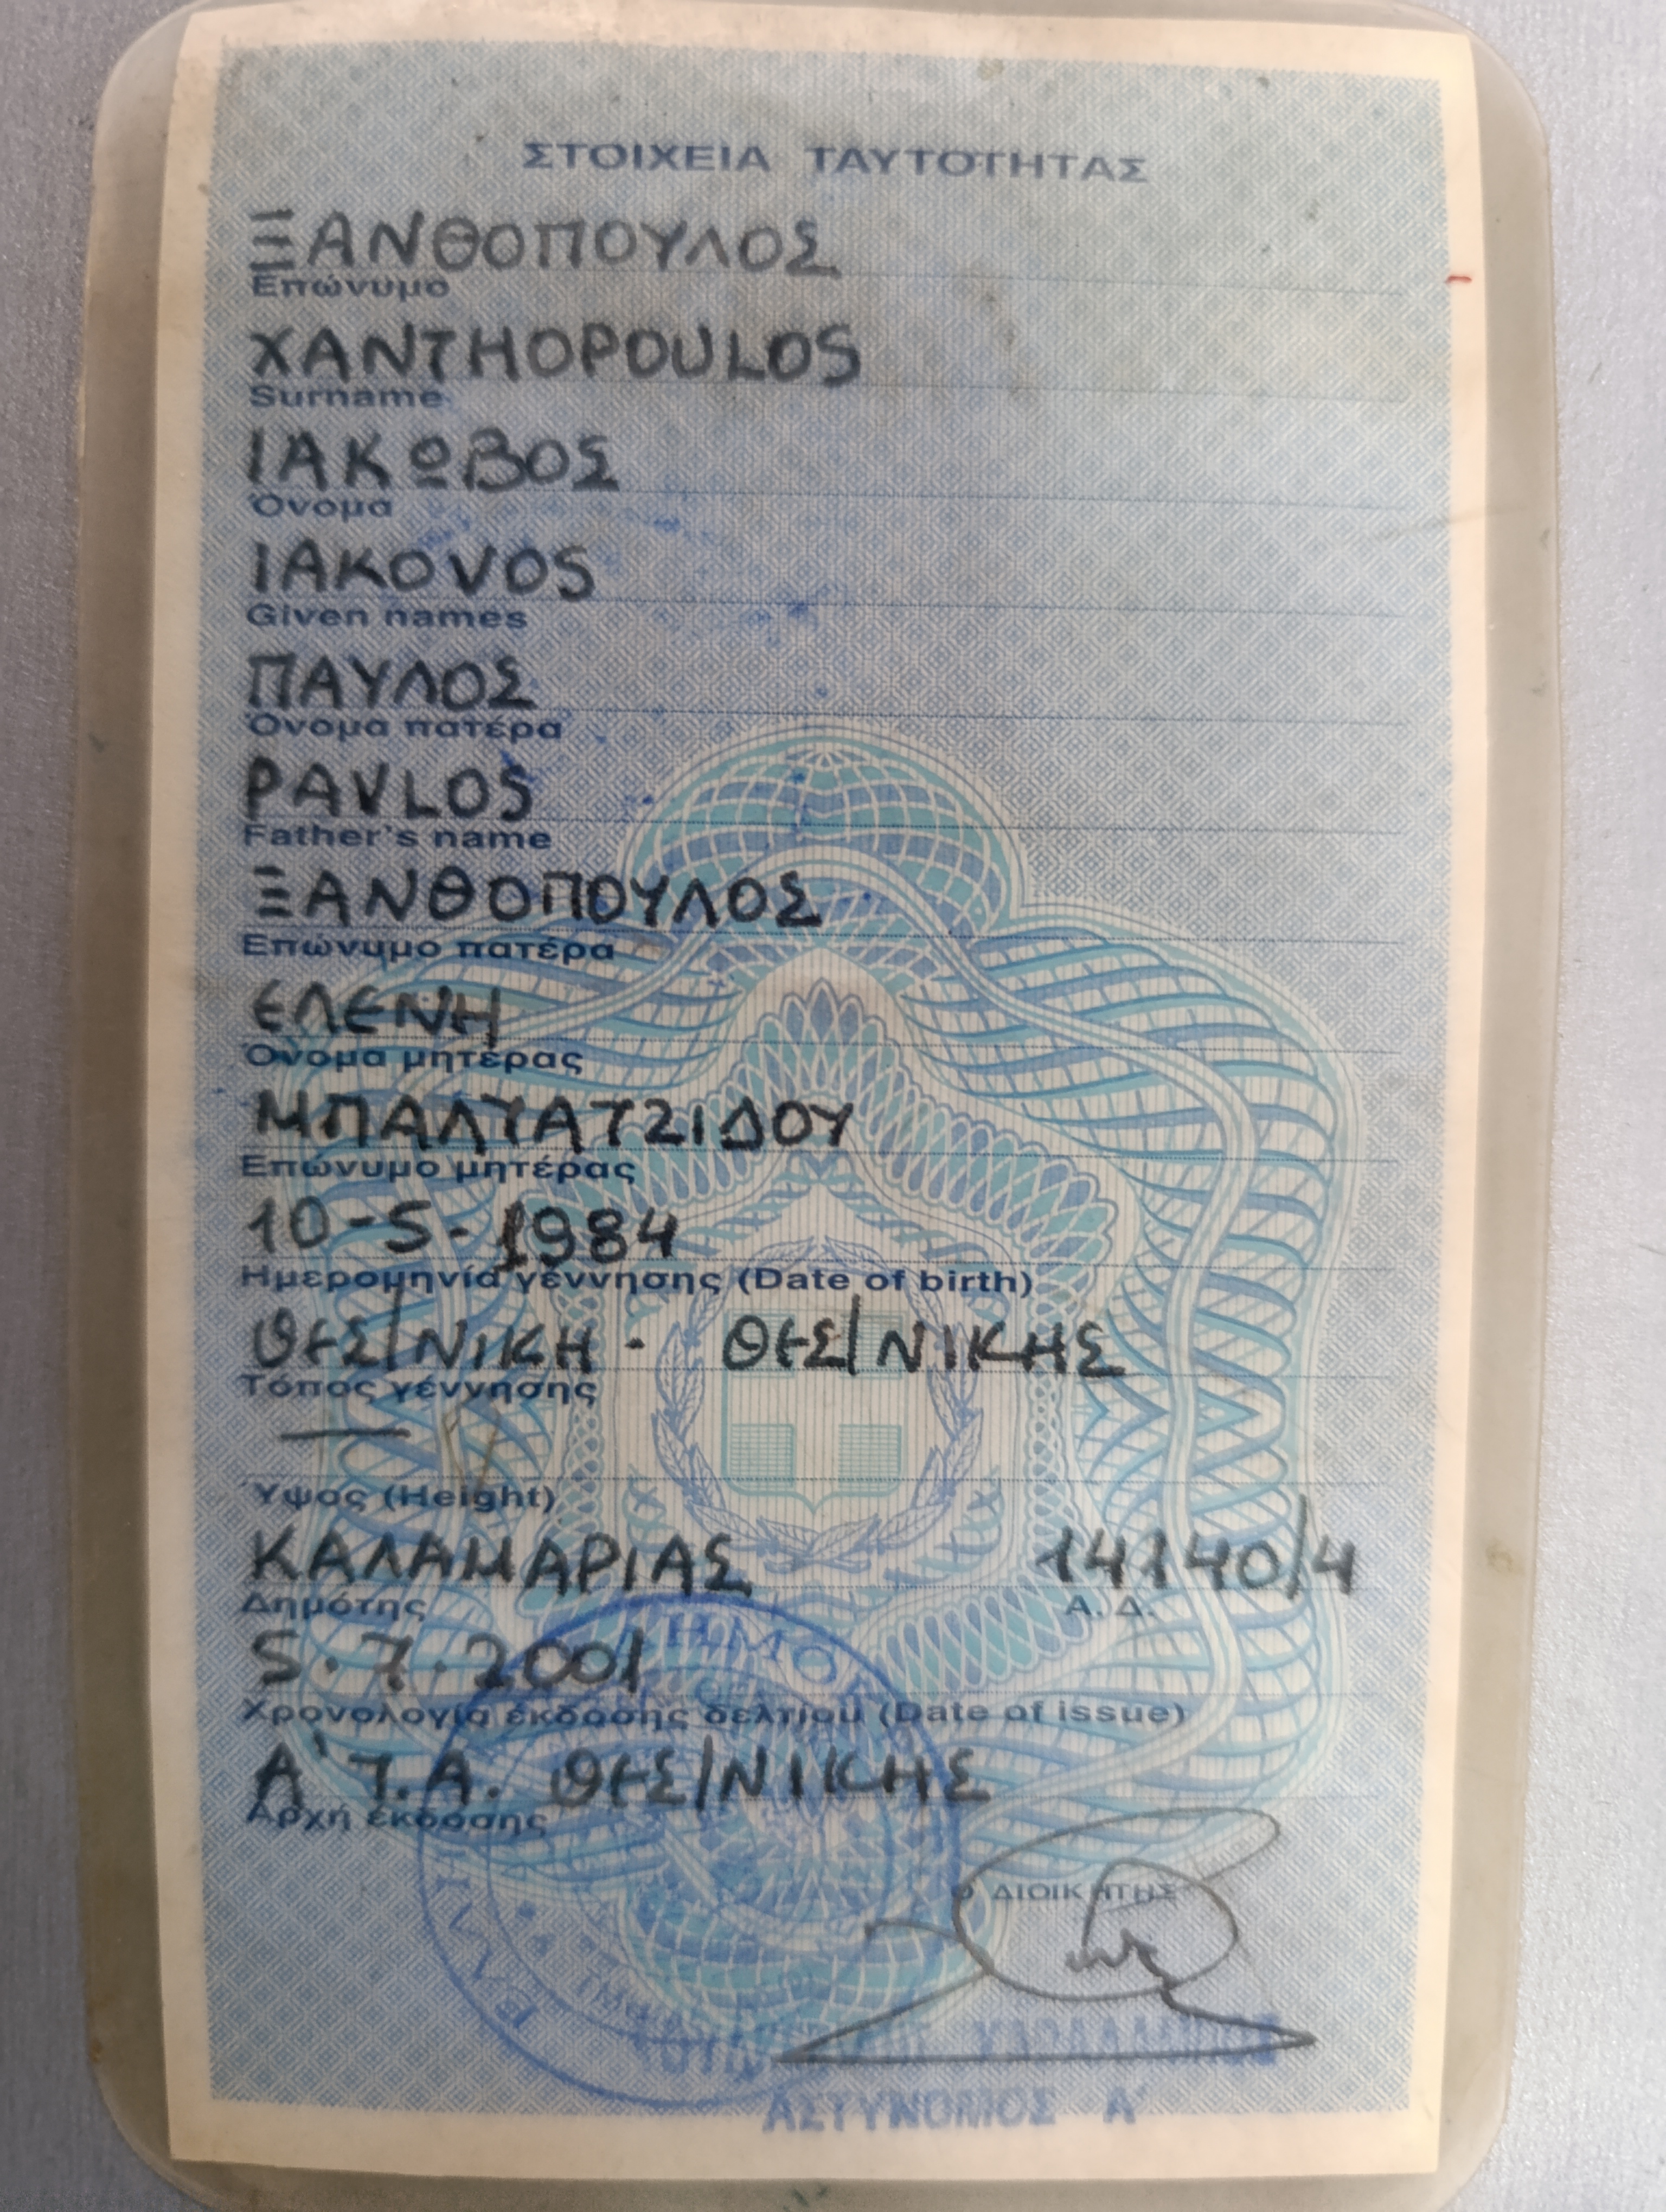 ΣΤΟΙΧΕΙΑ ΤΑΥΤΟΤΗΤΑΣ
ΞΑΝΘΟΠΟΥΛΟΣ
Επώνυμο
XANTHOPOULOS
Surname
ΙΑΚΩΒΟΣ
Όνομα
IAKOVOS
Given names
ΠΑΥΛΟΣ
Όνομα πατέρα
PAVLOS
Father's name
ΞΑΝΘΟΠΟΥΛΟΣ
Επώνυμο πατέρα
ΕΛΕΝΗ
Όνομα μητέρας
ΜΠΑΛΤΑΤΖΙΔΟΥ
Επώνυμο μητέρας
10-5-1984
Ημερομηνία γέννησης (Date of birth)
ΘΕΣ/ΝΙΚΗ - ΘΕΣ/ΝΙΚΗΣ
Τόπος γέννησης
—
Ύψος (Height)
ΚΑΛΑΜΑΡΙΑΣ 14140/4
Δημότης Α. Δ.
5.7.2001
Χρονολογία έκδοσης δελτίου (Date of issue)
Α' Τ.Α. ΘΕΣ/ΝΙΚΗΣ
Αρχή έκδοσης
Ο ΔΙΟΙΚΗΤΗΣ
ΑΣΤΥΝΟΜΟΣ Α'